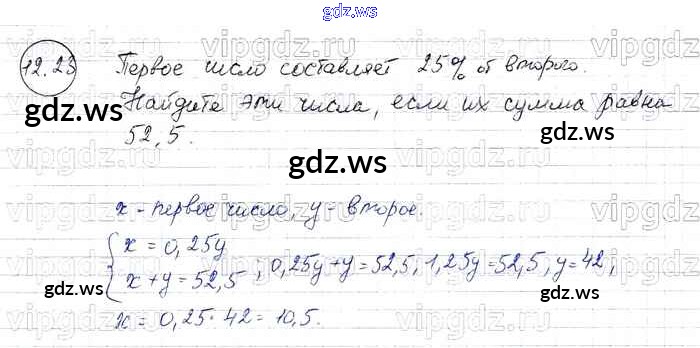 gdz.ws
12.23 Первое число составляет 25% от второго.
Найдите эти числа, если их сумма равна
52,5.
gdz.ws
x - первое число, y - второе.
{ x = 0,25y
x + y = 52,5 ; 0,25y + y = 52,5, 1,25y = 52,5, y = 42,
x = 0,25 · 42 = 10,5.
gdz.ws
gdz.ws
gdz.ws
gdz.ws
vipgdz vipgdz vipgdz vipgdz